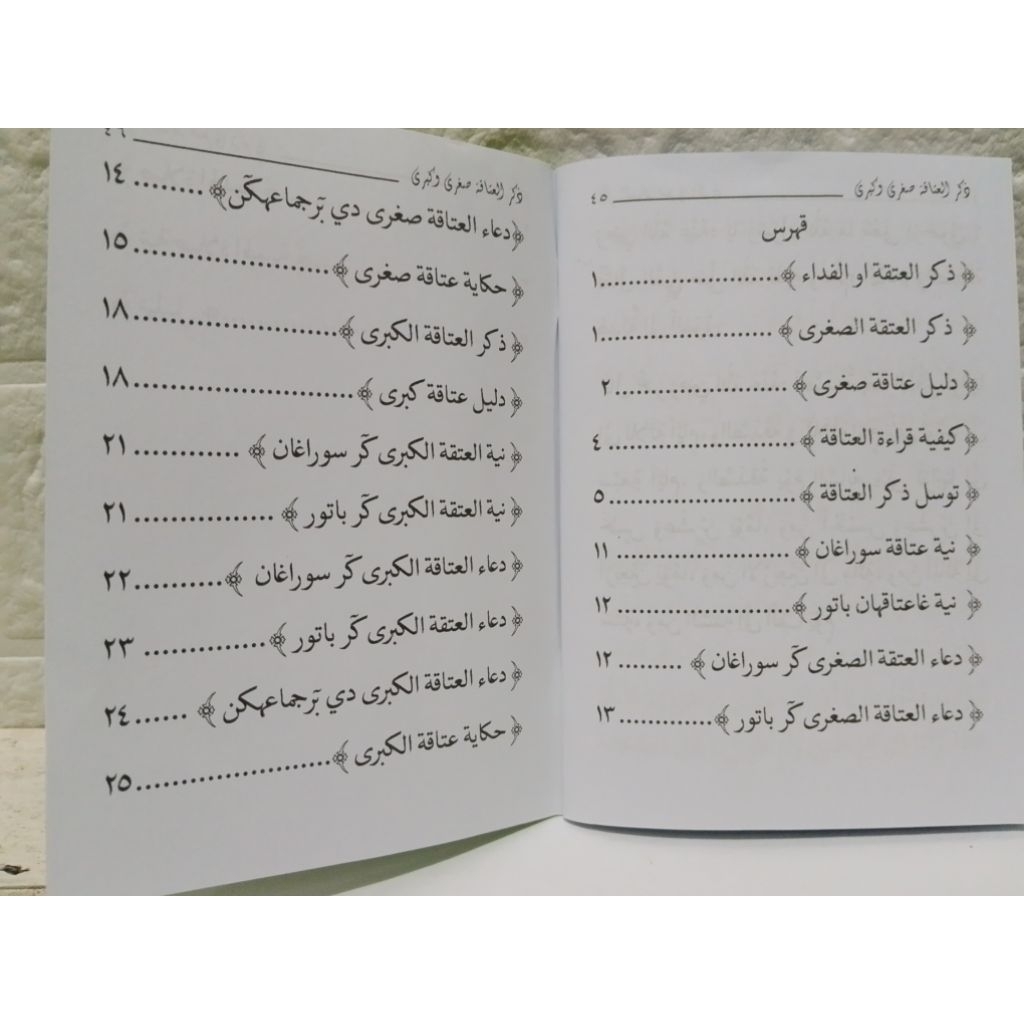 ذكر العتاقة صغرى وكبرى ٤٥
فهرس
﴿ ذكر العتقة او الفداء ﴾ ١
﴿ ذكر العتقة الصغرى ﴾ ١
﴿ دليل عتاقة صغرى ﴾ ٢
﴿ كيفية قراءة العتاقة ﴾ ٤
﴿ توسل ذكر العتاقة ﴾ ٥
﴿ نية عتاقة سوراغان ﴾ ١١
﴿ نية غاعتاقهان باتور ﴾ ١٢
﴿ دعاء العتقة الصغرى كٓر سوراغان ﴾ ١٢
﴿ دعاء العتاقة الصغرى كٓر باتور ﴾ ١٣
ذكر العتاقة صغرى وكبرى ٤٦
﴿ دعاء العتاقة صغرى دي بٓرجماعهكٓن ﴾ ١٤
﴿ حكاية عتاقة صغرى ﴾ ١٥
﴿ ذكر العتاقة الكبرى ﴾ ١٨
﴿ دليل عتاقة كبرى ﴾ ١٨
﴿ نية العتقة الكبرى كٓر سوراغان ﴾ ٢١
﴿ نية العتقة الكبرى كٓر باتور ﴾ ٢١
﴿ دعاء العتاقة الكبرى كٓر سوراغان ﴾ ٢٢
﴿ دعاء العتقة الكبرى كٓر باتور ﴾ ٢٣
﴿ دعاء العتاقة الكبرى دي بٓرجماعهكن ﴾ ٢٤
﴿ حكاية عتاقة الكبرى ﴾ ٢٥